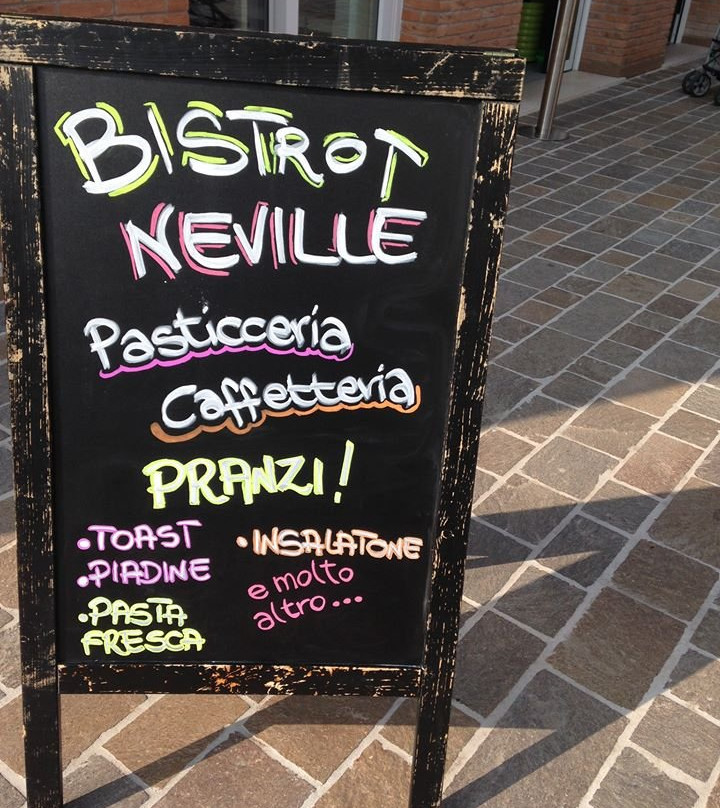 BISTROT
NEVILLE
Pasticceria
Caffetteria
PRANZI!
•TOAST
•PIADINE
•PASTA
FRESCA
•INSALATONE
e molto
altro...